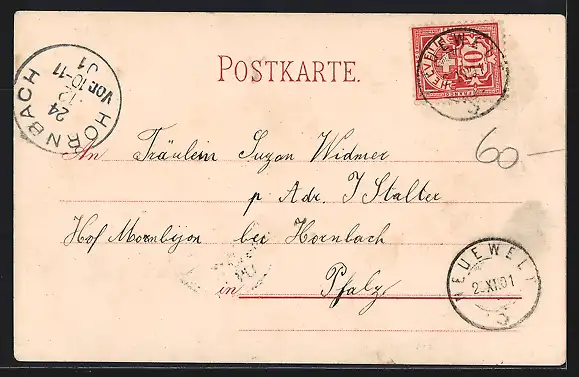 POSTKARTE.
HELVETIA
10
FRANCO
NEUEWELT
HORNBACH
24
12
Vor.10-11
01
60 –
An Fräulein Suzan Widmer
p Adr. J Stalter
Hof Mombijon bei Hornbach
in Pfalz
NEUEWELT
2.XI.01